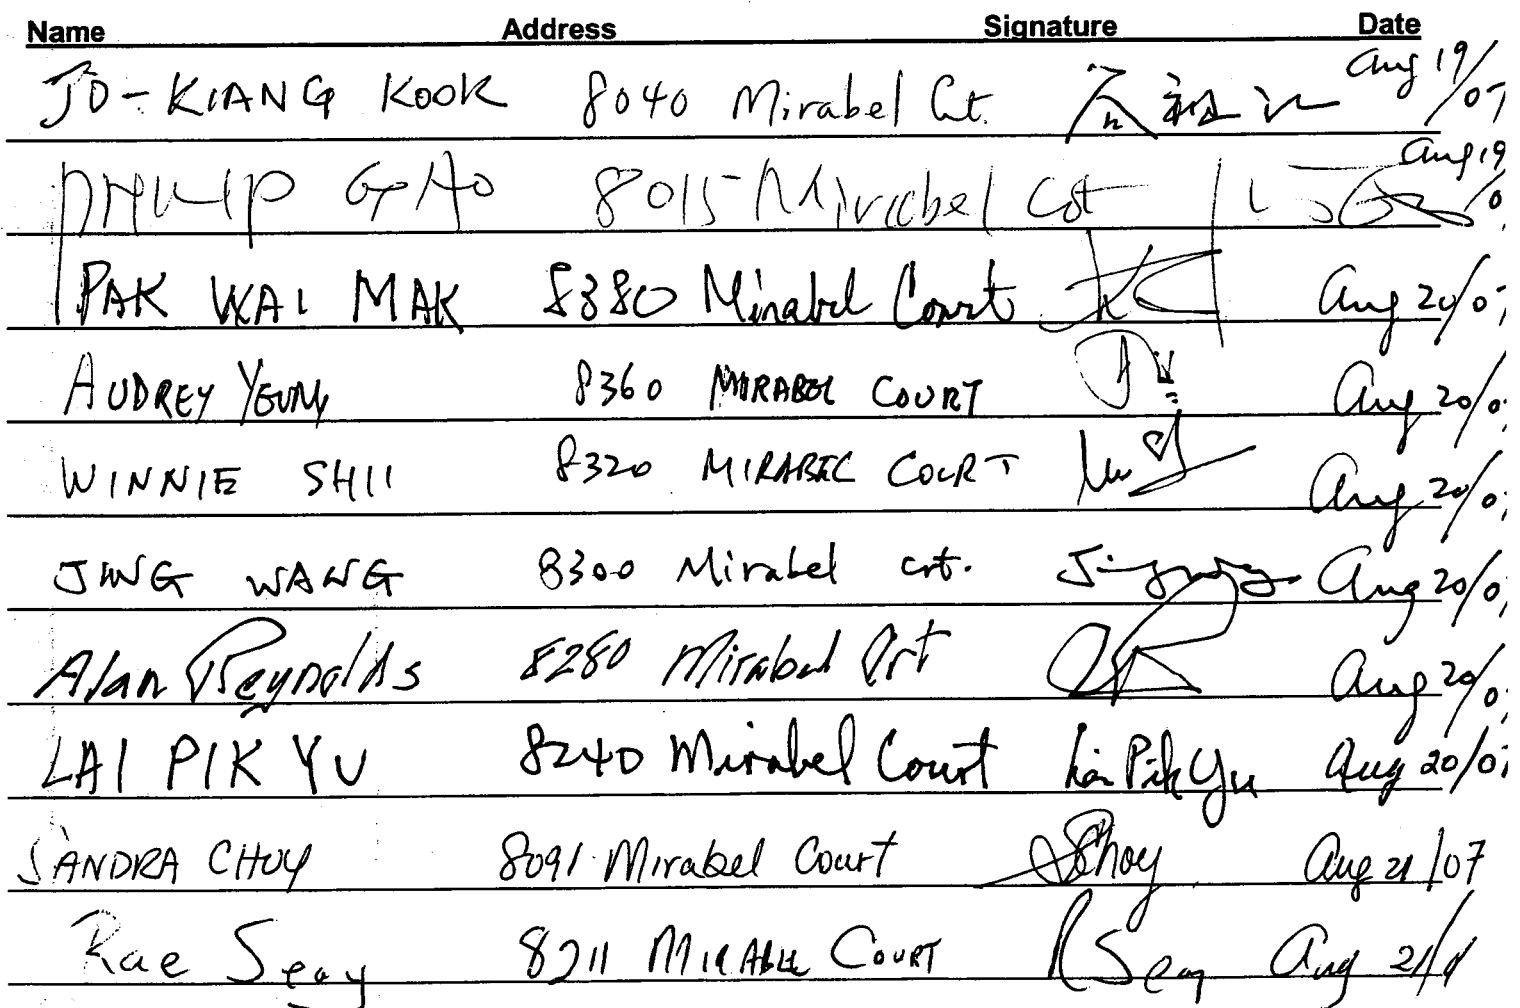 Name Address Signature Date
JO-KIANG KOOK 8040 Mirabel Ct. Aug 19/07
GAO 8015 Mirabel Crt Aug 19
PAK WAI MAK 8380 Mirabel Court Aug 20/07
AUDREY YEUNG 8360 MIRABEL COURT Aug 20/0
WINNIE SHII 8320 MIRABEL COURT Aug 20/0
JING WANG 8300 Mirabel crt. Aug 20/0
Alan Reynolds 8280 Mirabel Crt Aug 20/0
LAI PIK YU 8240 Mirabel Court Lai Pik Yu Aug 20/07
SANDRA CHOY 8091 Mirabel Court SChoy Aug 21/07
Rae Seay 8211 MIRABLE COURT RSeay Aug 21/